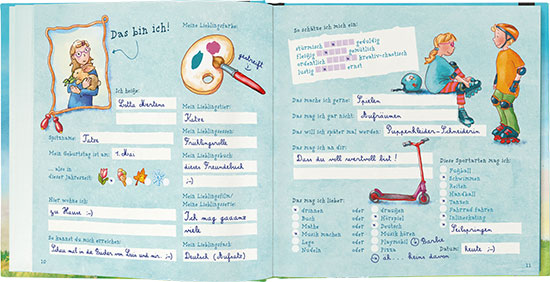 Das bin ich!
Ich heiße:
Lotta Martens
Spitzname:
Tatze
Mein Geburtstag ist am:
1. Mai
... also in
dieser Jahreszeit:
Hier wohne ich:
zu Hause :-)
So kannst du mich erreichen:
Schau mal in die
von
und mir. :-)
Meine Lieblingsfarbe:
gestreift
Mein Lieblingstier:
Katze
Mein Lieblingsessen:
Frühlingsrolle
Mein Lieblingsbuch:
dieses Freundebuch
:-)
Mein Lieblingsfilm/
Meine Lieblingsserie:
Ich mag gaaanz
viele
Mein Lieblingsfach:
Deutsch (Aufsatz)
10
So schätze ich mich ein:
stürmisch geduldig
fleißig gemütlich
ordentlich kreativ-chaotisch
lustig ernst
Das mache ich gerne:
Spielen
Das mag ich gar nicht:
Aufräumen
Das will ich später mal werden:
Puppenkleider-Schneiderin
Das mag ich an dir:
Dass du voll wertvoll bist!
Das mag ich lieber:
drinnen oder draußen
Buch oder Hörspiel
Mathe oder Deutsch
Musik machen oder Musik hören
Lego oder Playmobil Barbie
Nudeln oder Pizza
äh... keine davon
Diese Sportarten mag ich:
Fußball
Schwimmen
Reiten
Handball
Tanzen
Fahrrad fahren
Inlineskating
Seilspringen
Datum: heute :-)
11